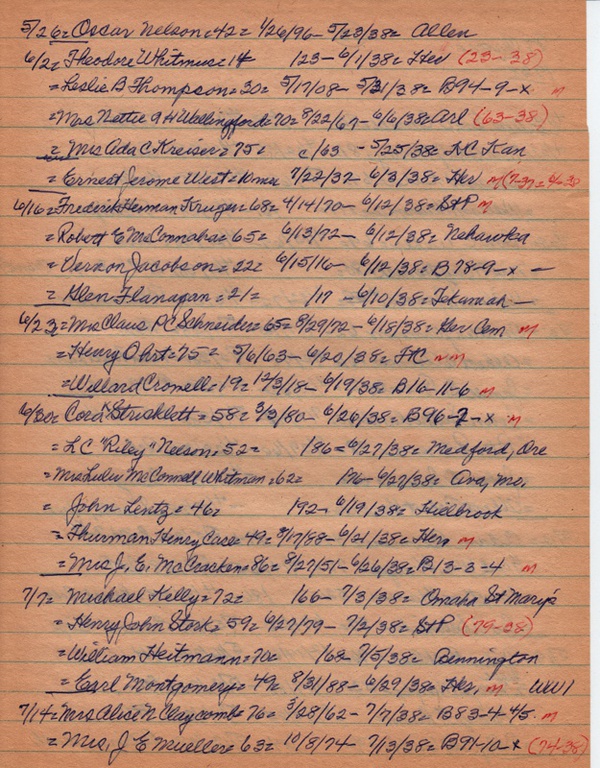 5/26= Oscar Nelson=42= 1/26/96- 5/23/38= Allen
6/2= Theodore Whitmus= 14 /23- 6/1/38= Her (23-38)
=Leslie B Thompson=30= 5/17/08- 5/31/38= B94-9-x m
=Mrs Nettie A H Wallingford=70= 8/22/67- 6/6/38= Arl (63-38)
= Mrs Ada C Kreiser=75= c/63 - 5/25/38= LC Kan
=Ernest Jerome West= 10mos 7/22/37- 6/3/38= Her m
6/16= Frederik Herman Kruger=68= 4/14/70- 6/12/38= St P m
=Robert E McConnaha=65= 6/13/72- 6/12/38= Nehawka
=Vernon Jacobson=22= 6/15/16- 6/12/38= B78-9-x -
=Glen Flanagan=21= /17 - 6/10/38= Tekamah -
6/23=Mrs Claus PC Schneider=65= 8/29/72- 6/18/38= Her Cem m
=Henry Ohrt=75= 5/6/63- 6/20/38= FtC m
=Willard Cromell=19= 12/3/18- 6/19/38= B16-11-6 m
6/30= Cora Stricklett=58= 3/3/80- 6/26/38= B96-2-x m
=LC "Riley" Nelson=52= 186= 6/27/38= Medford, Ore
=Mrs McConnell Whitman=62= 6/27/38= Ava, Mo.
= John Lentz=46= 192- 6/19/38= Hillbrook
=Thurman Henry Case=49= 9/17/88- 6/21/38= Her m
=Mrs J. E. McCracken=86= 8/27/51- 6/26/38= B13-3-4 m
7/7= Michael Kelly=72= /66- 7/3/38= Omaha St Mary's
=Henry John Stork=59= 6/27/79- 7/2/38= St P (79-38)
=William Heitmann=70= /68 7/5/38= Bennington
=Earl Montgomery=49= 8/31/88- 6/29/38= Her, m WW1
7/14=Mrs Alice N Claycomb=76= 3/28/62- 7/7/38= B83-4-4/5 m
=Mrs, J E Mueller=63= 10/8/74- 7/13/38= B91-10-x (74-38)